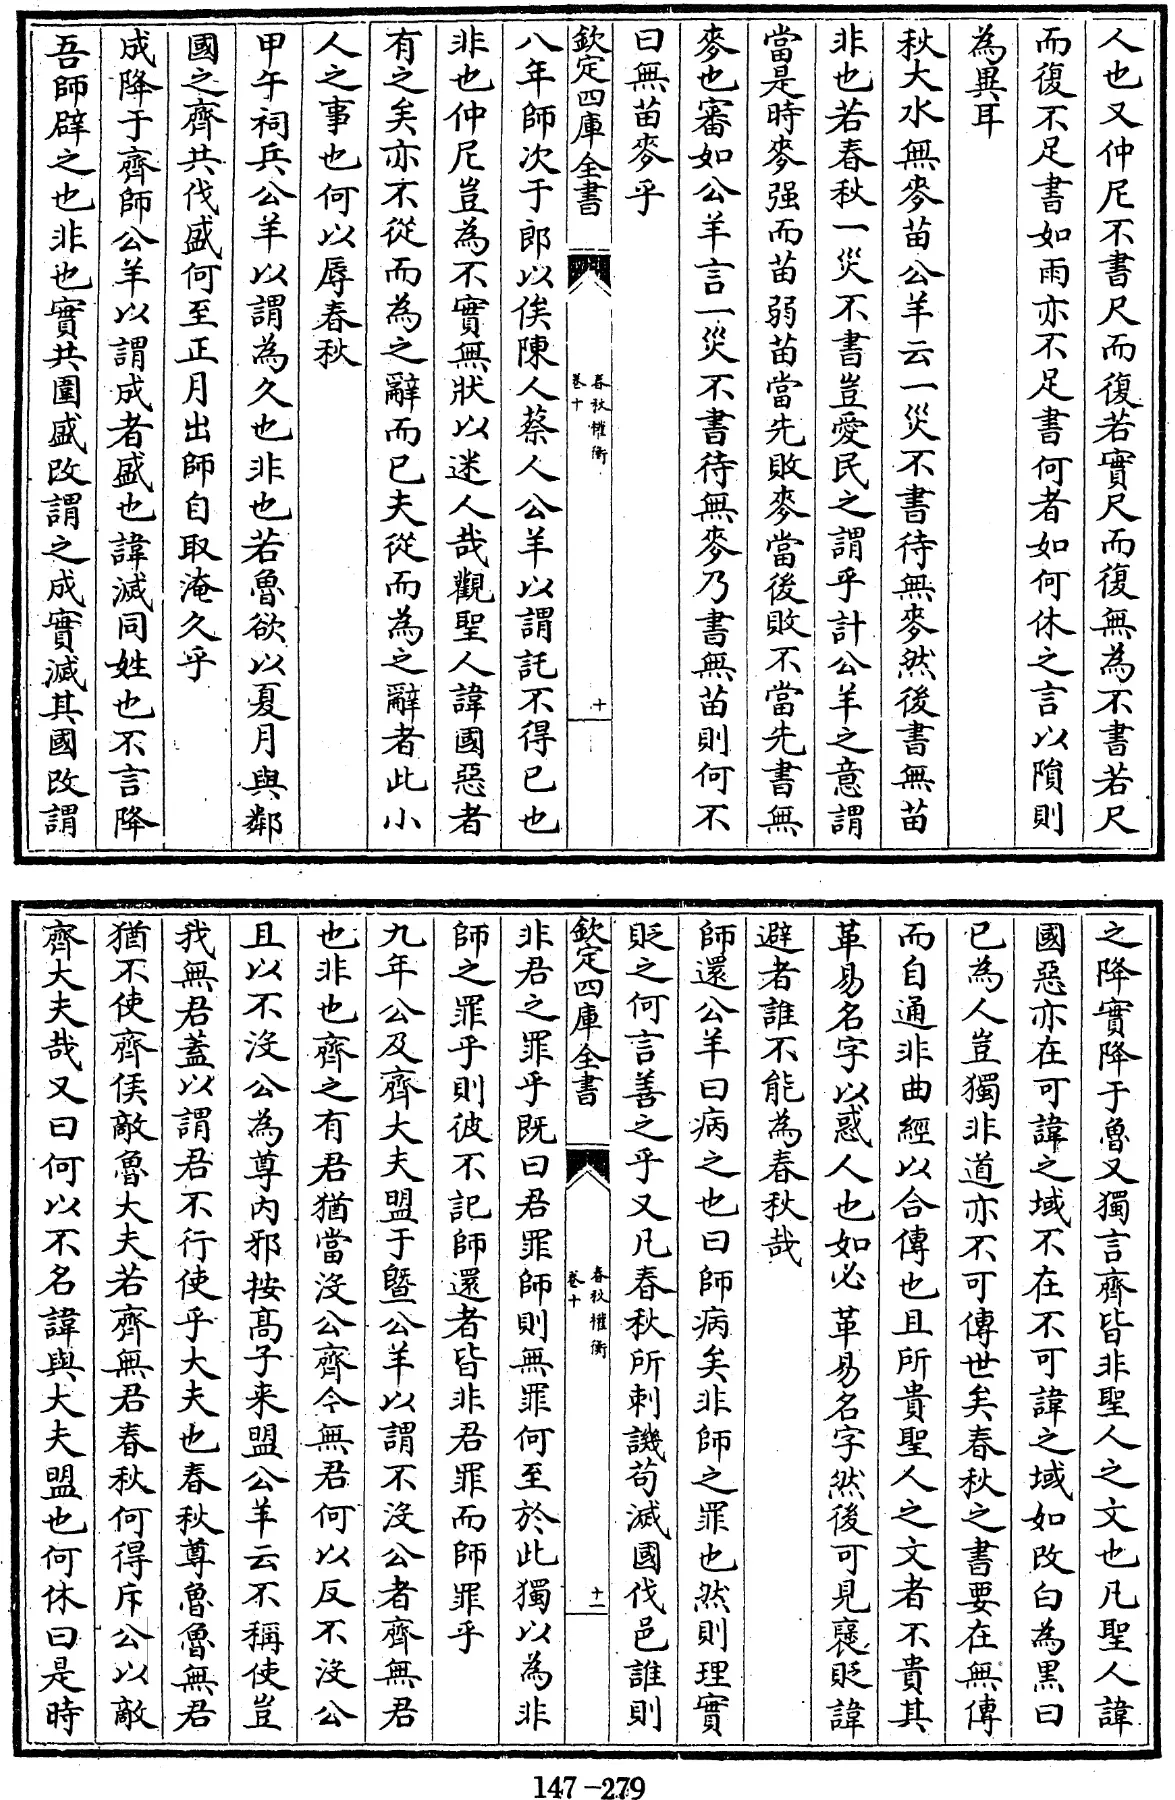 人也又仲尼不書尺而復若實尺而復無為不書若尺
而復不足書如雨亦不足書何者如何休之言以隕則
為異耳
秋大水無麥苗公羊云一災不書待無麥然後書無苗
非也若春秋一災不書豈愛民之謂乎計公羊之意謂
當是時麥强而苗弱苗當先敗麥當後敗不當先書無
麥也審如公羊言一災不書待無麥乃書無苗則何不
曰無苗麥乎
欽定四庫全書
春秋權衡
卷十
十
八年師次于郎以俟陳人蔡人公羊以謂託不得已也
非也仲尼豈為不實無狀以迷人哉觀聖人諱國惡者
有之矣亦不從而為之辭而已夫從而為之辭者此小
人之事也何以辱春秋
甲午祠兵公羊以謂為久也非也若魯欲以夏月與鄰
國之齊共伐盛何至正月出師自取淹久乎
成降于齊師公羊以謂成者盛也諱滅同姓也不言降
吾師辟之也非也實共圍盛改謂之成實滅其國改謂
之降實降于魯又獨言齊皆非聖人之文也凡聖人諱
國惡亦在可諱之域不在不可諱之域如改白為黑曰
已為人豈獨非道亦不可傳世矣春秋之書要在無傳
而自通非曲經以合傳也且所貴聖人之文者不貴其
革易名字以惑人也如必革易名字然後可見褒貶諱
避者誰不能為春秋哉
師還公羊曰病之也曰師病矣非師之罪也然則理實
貶之何言善之乎又凡春秋所刺譏苟滅國伐邑誰則
欽定四庫全書
春秋權衡
卷十
十一
非君之罪乎既曰君罪師則無罪何至於此獨以為非
師之罪乎則彼不記師還者皆非君罪而師罪乎
九年公及齊大夫盟于暨公羊以謂不沒公者齊無君
也非也齊之有君猶當沒公齊今無君何以反不沒公
且以不沒公為尊内邪按髙子来盟公羊云不稱使豈
我無君蓋以謂君不行使乎大夫也春秋尊魯魯無君
猶不使齊侯敵魯大夫若齊無君春秋何得斥公以敵
齊大夫哉又曰何以不名諱與大夫盟也何休曰是時
147-279